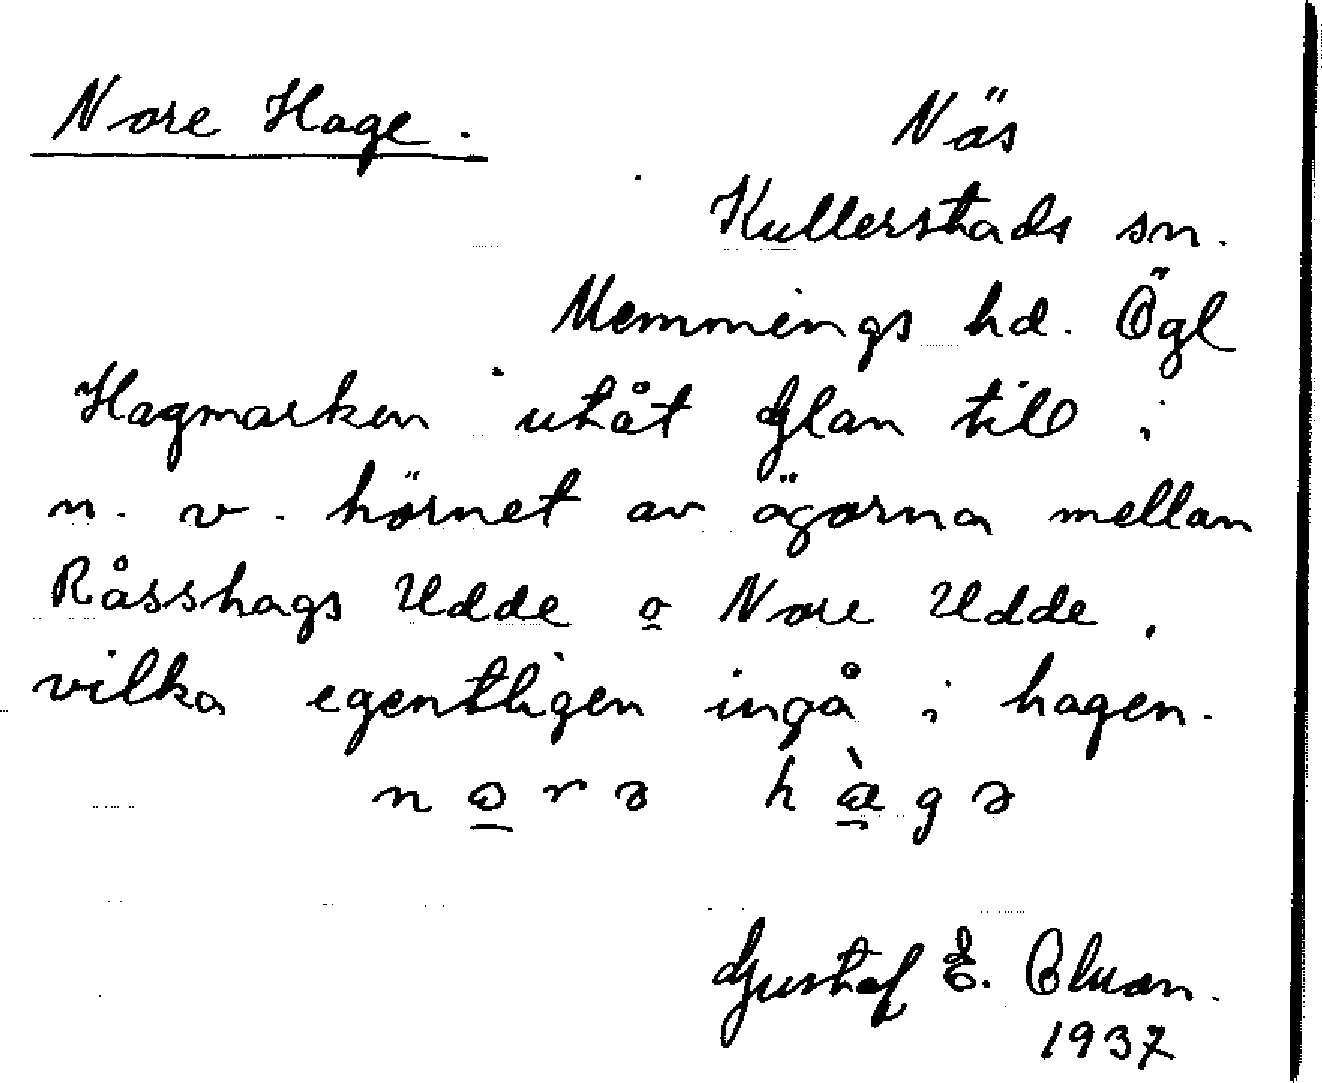 Nore Hage. Näs
Kullerstads sn.
Memmings hd. Ögl
Hagmarken utåt Glan till i
n. v. hörnet av ägorna mellan
Råsshags Udde o Nore Udde,
vilka egentligen ingå i hagen.
nɷrə hàgə
Gustaf E.
1937